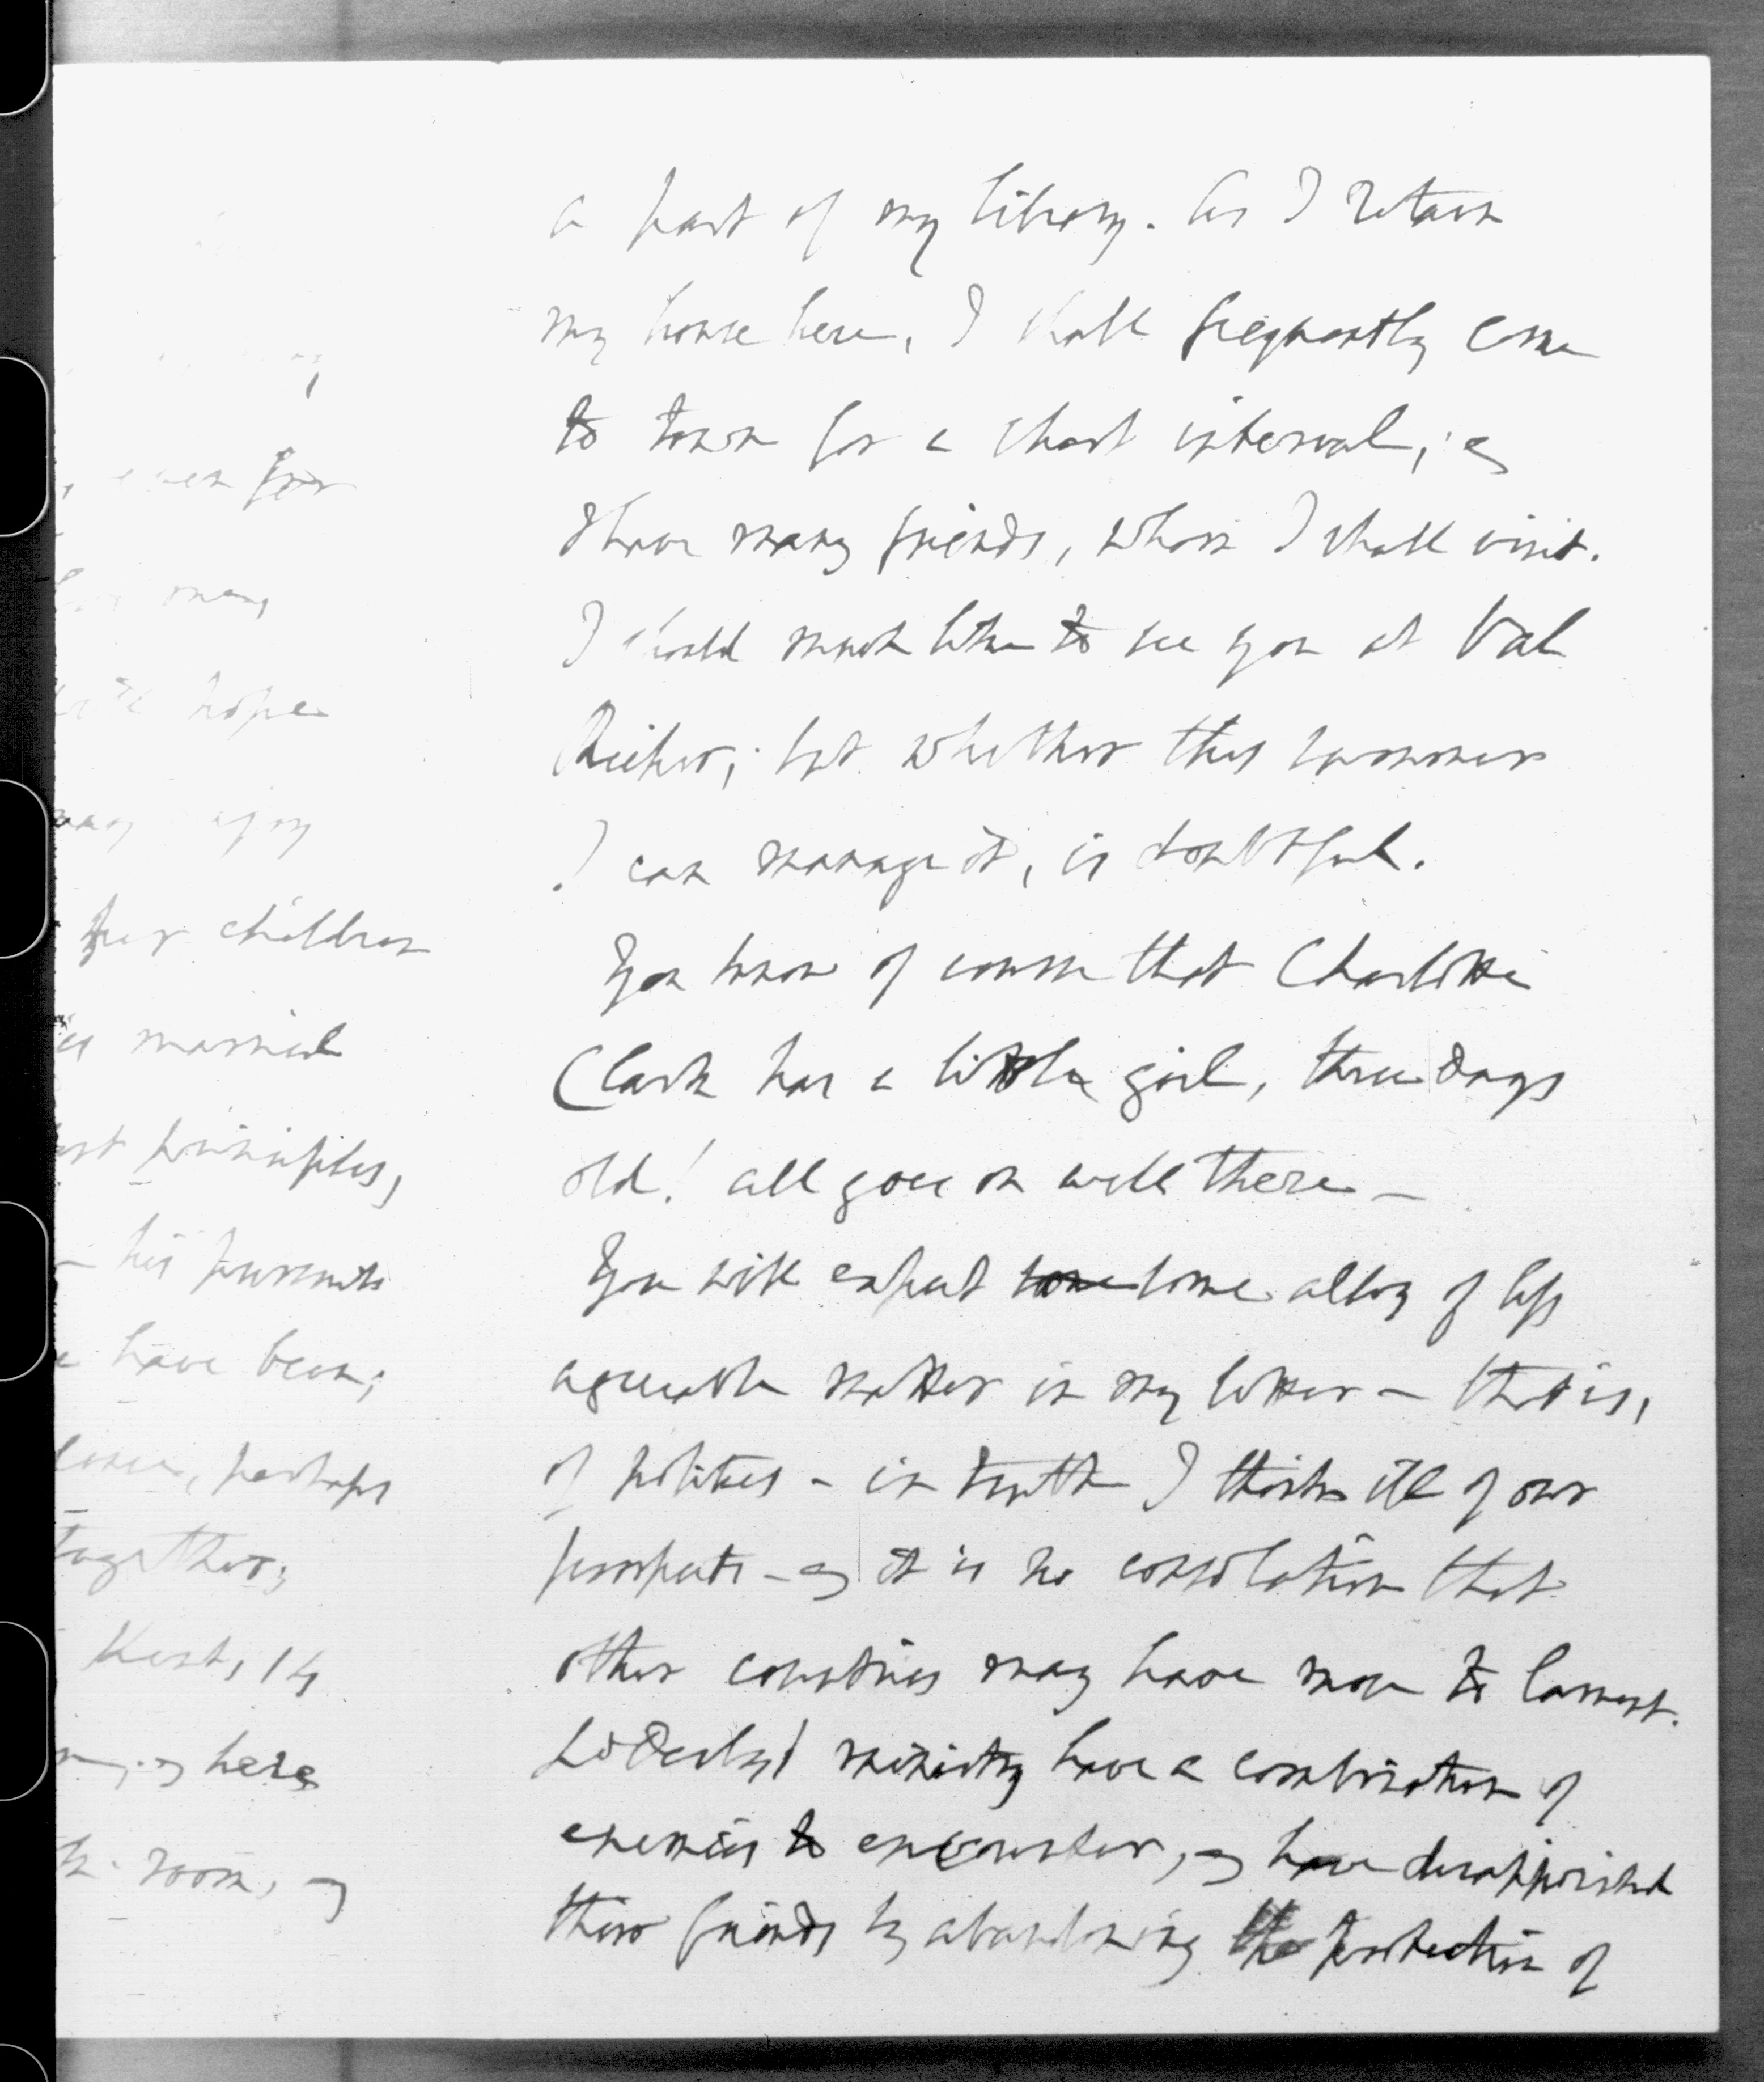 even for
many
hope
enjoy
four children
is married
principles,
– his pursuits
have been;
perhaps
together;
Kent, 14
& here
room, &
a part of my library. As I retain
my house here, I shall frequently come
to town for a short interval; &
I have many friends, whom I shall visit.
I should much like to see you at Val
Richer; but whether this summer
I can manage it, is doubtful.
You know of course that Charlotte
Clark has a little girl, three days
old! all goes on well there –
You will expect some some alloy of less
agreeable matter in my letter – that is,
of politics – in truth I think ill of our
prospects – & it is no consolation that
other countries may have more to lament.
Ld Derby's ministry have a combination of
enemies to encounter, & have disappointed
their friends by abandoning the protection of